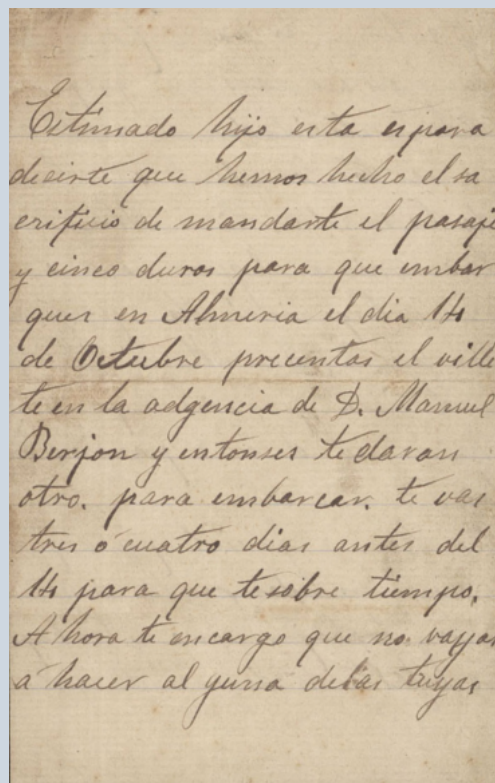 Estimado hijo esta es para
decirte que hemos hecho el sa
crificio de mandarte el pasaje
y cinco duros para que embar
ques en Almeria el dia 14
de Octubre precentas el ville
te en la adgencia de D. Manuel
Berjon y entonses te daran
otro. para embarcar. te vas
tres ó cuatro dias antes del
14 para que te sobre tiempo.
A hora te encargo que no vayas
á hacer al guna delas tuyas